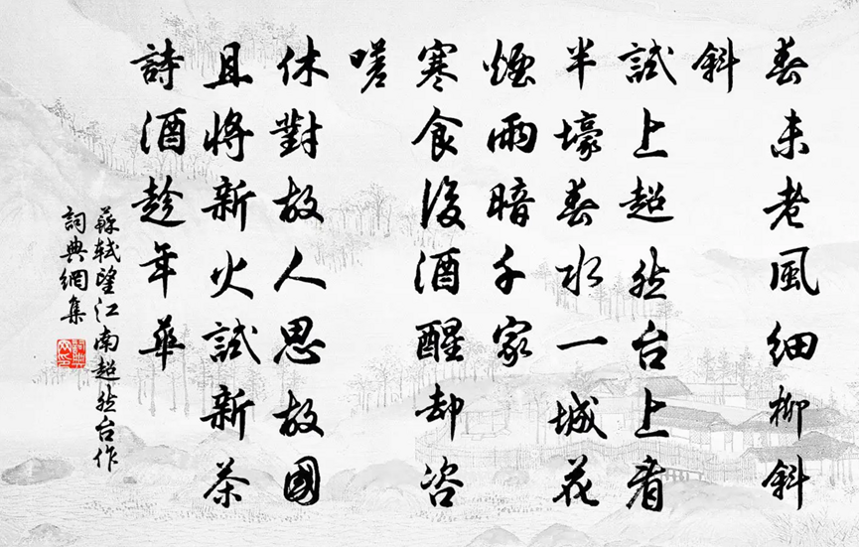 春未老風細柳斜
斜
試上超然台上看
半壕春水一城花
煙雨暗千家
寒食後酒醒却咨
嗟
休對故人思故國
且將新火試新茶
詩酒趁年華
蘇軾望江南超然台作
詞典網集